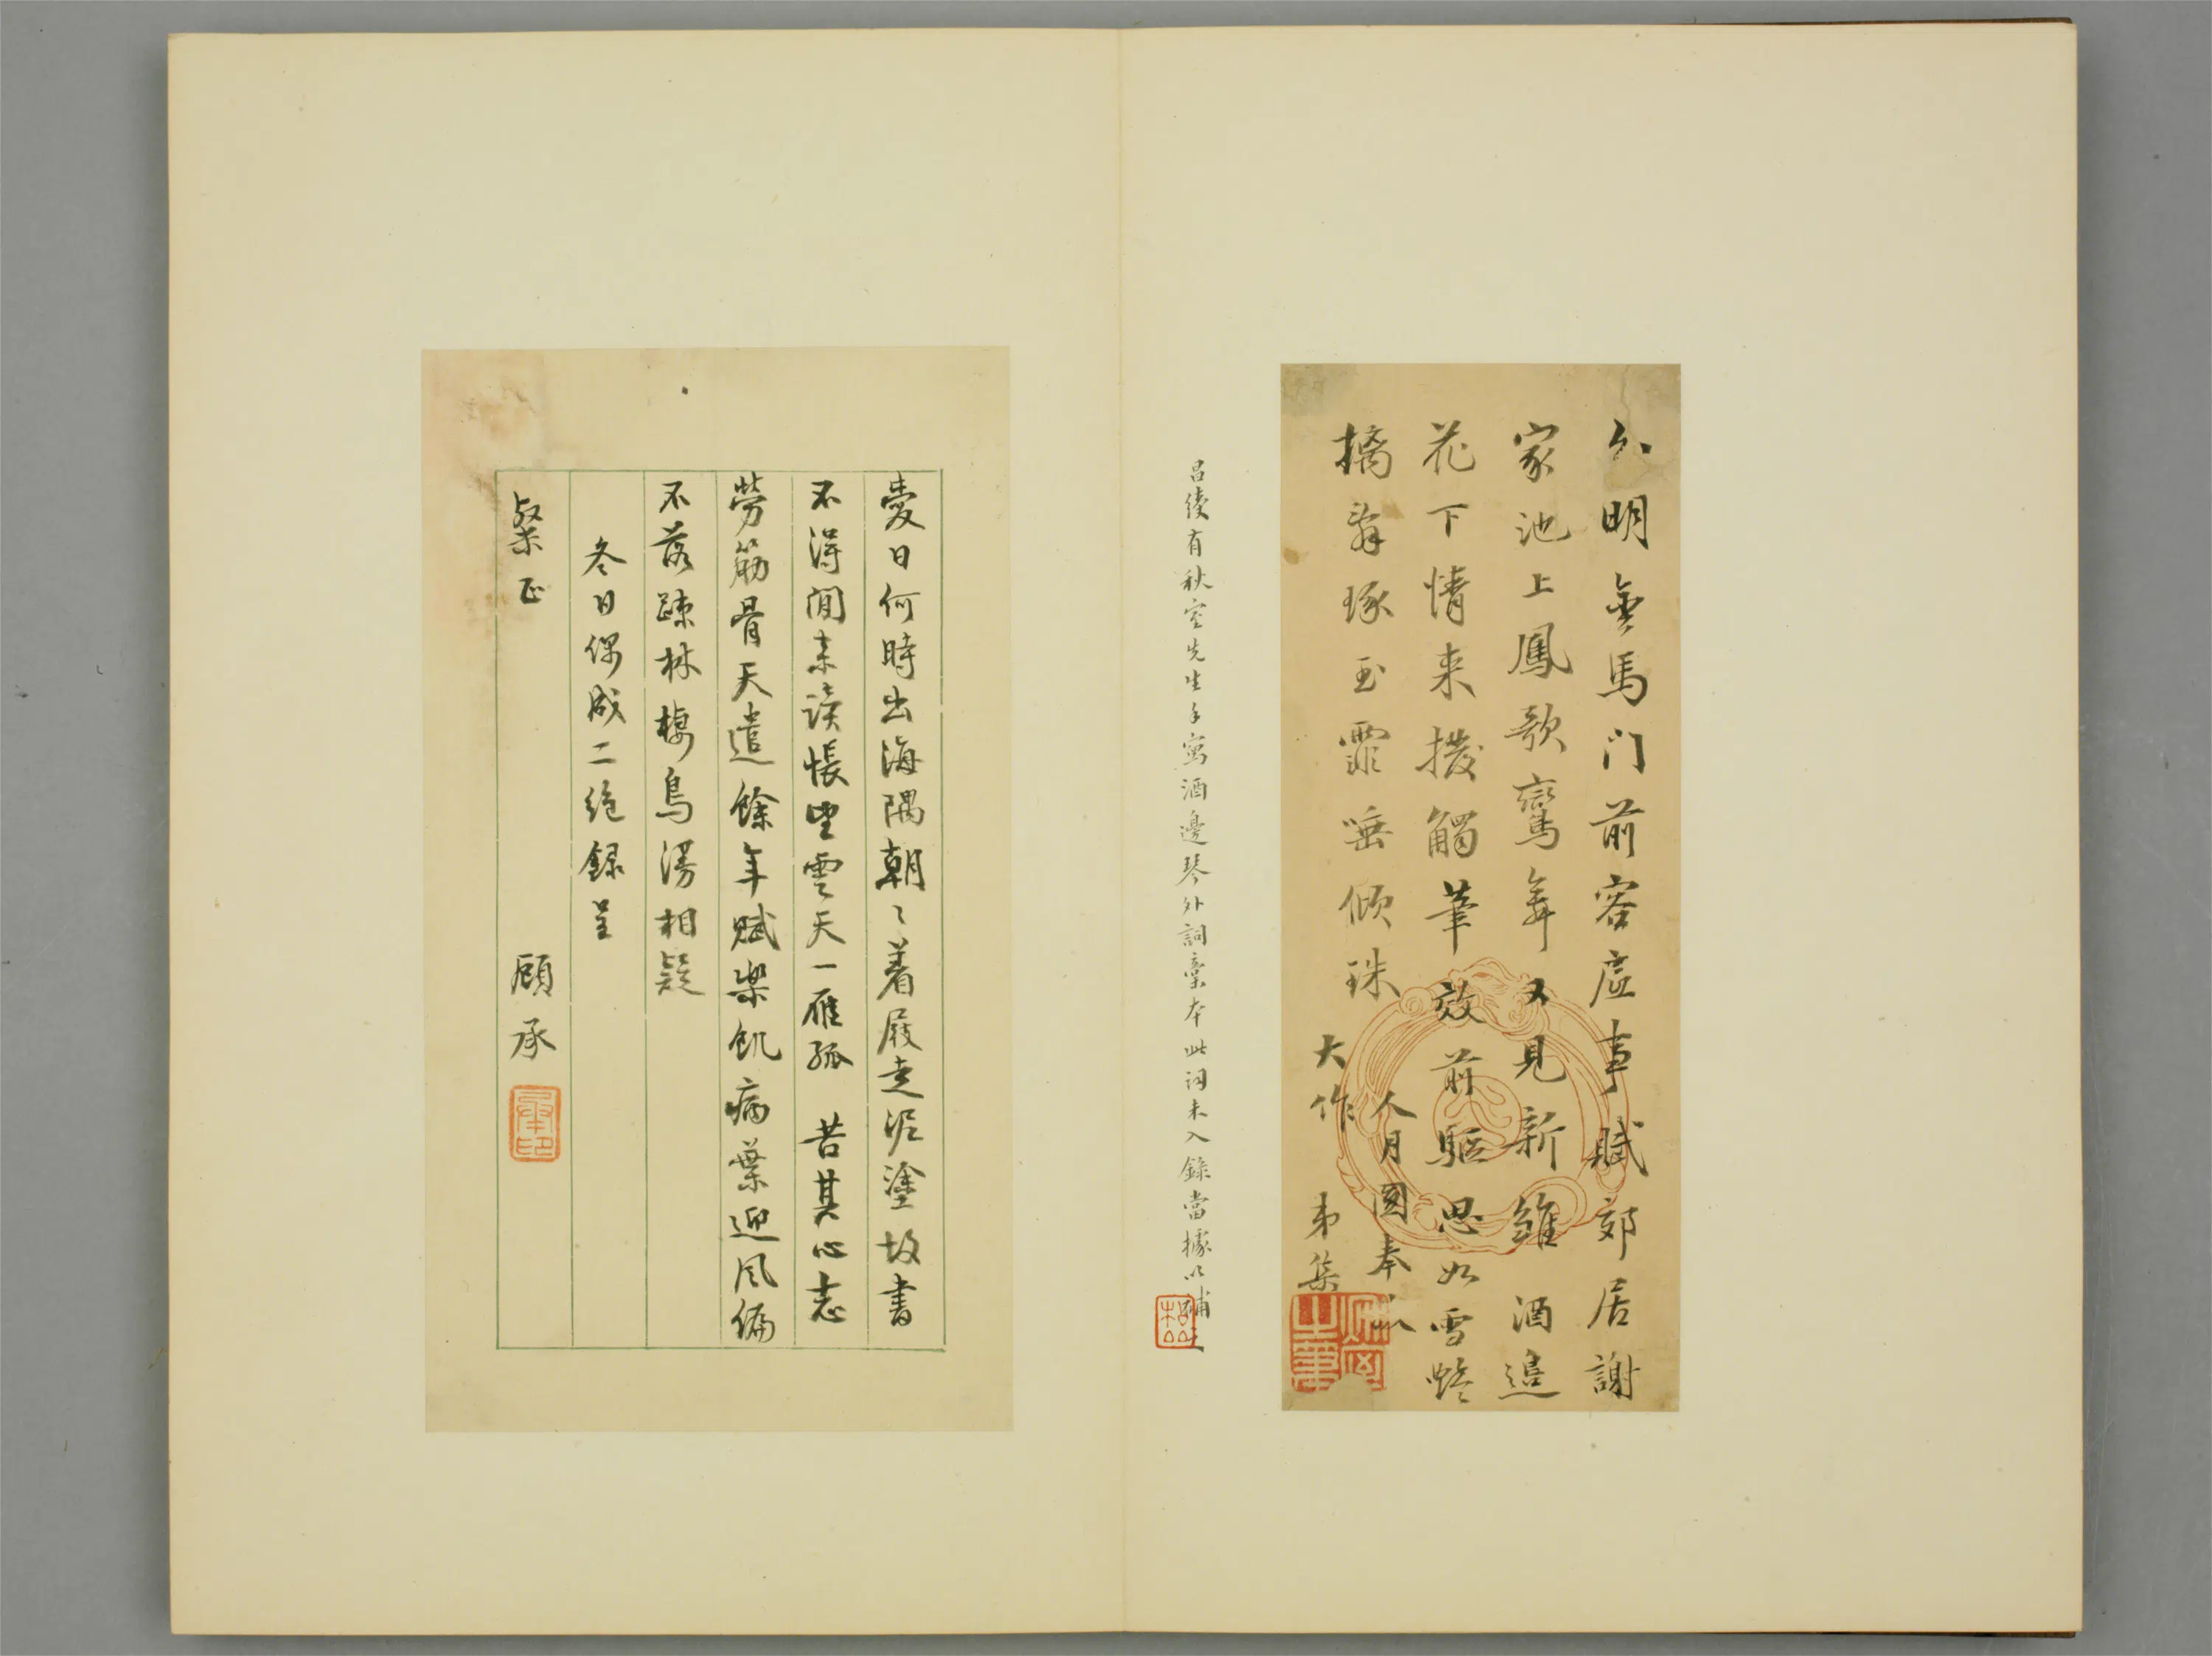 公明金馬门前客虛事賦郊居謝
家池上鳳歌鸞舞又見新雛酒邊
花下情来撥觸筆效前驅思如雪
摛辭琢玉霏唾傾珠
人月圓奉
大作
弟集
昌綬有秋室先生手寫酒邊琴外詞稾本此詞未入錄當據以補之
愛日何時出海隅朝〻着屐走泥塗故書
不得閒来讀悵望雲天一雁孤 苦其心志
勞筋骨天遣餘年賦樂飢病葉迎風偏
不落疎林棲鳥漫相疑
冬日偶成二絶録呈
粲正 顧承
承印